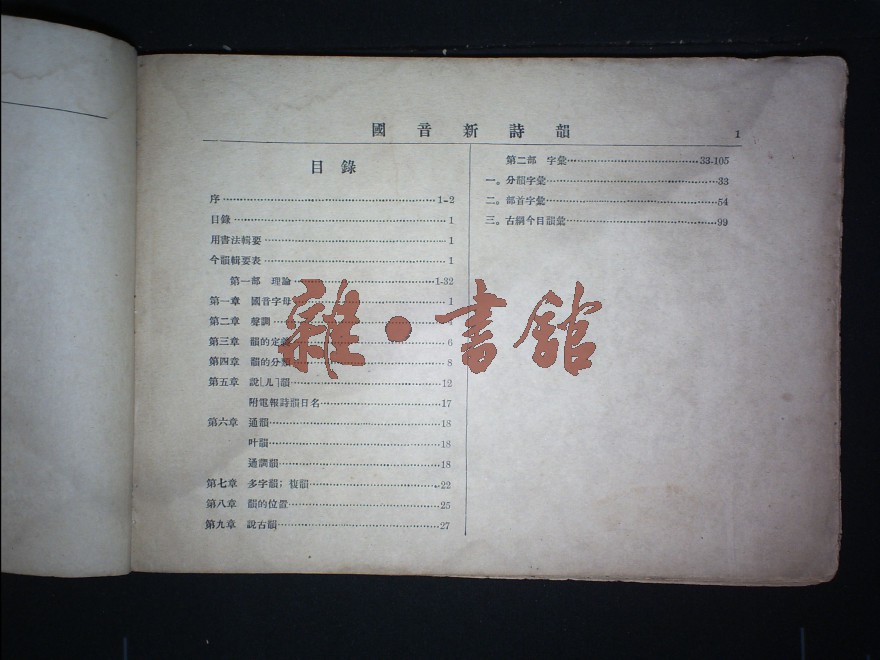 國音新詩韻 1
目錄
序 1-2
目錄 1
用書法輯要 1
今韻輯要表 1
第一部 理論 1-32
第一章 國音字母 1
第二章 聲調
第三章 韻的定義 6
第四章 韻的分類 8
第五章 說[ㄦ]韻 12
附電報詩韻目名 17
第六章 通韻 18
叶韻 18
通調韻 18
第七章 多字韻；複韻 22
第八章 韻的位置 25
第九章 說古韻 27
第二部 字彙 33-105
一。分韻字彙 33
二。部首字彙 54
三。古綱今目韻彙 99
雜·書館